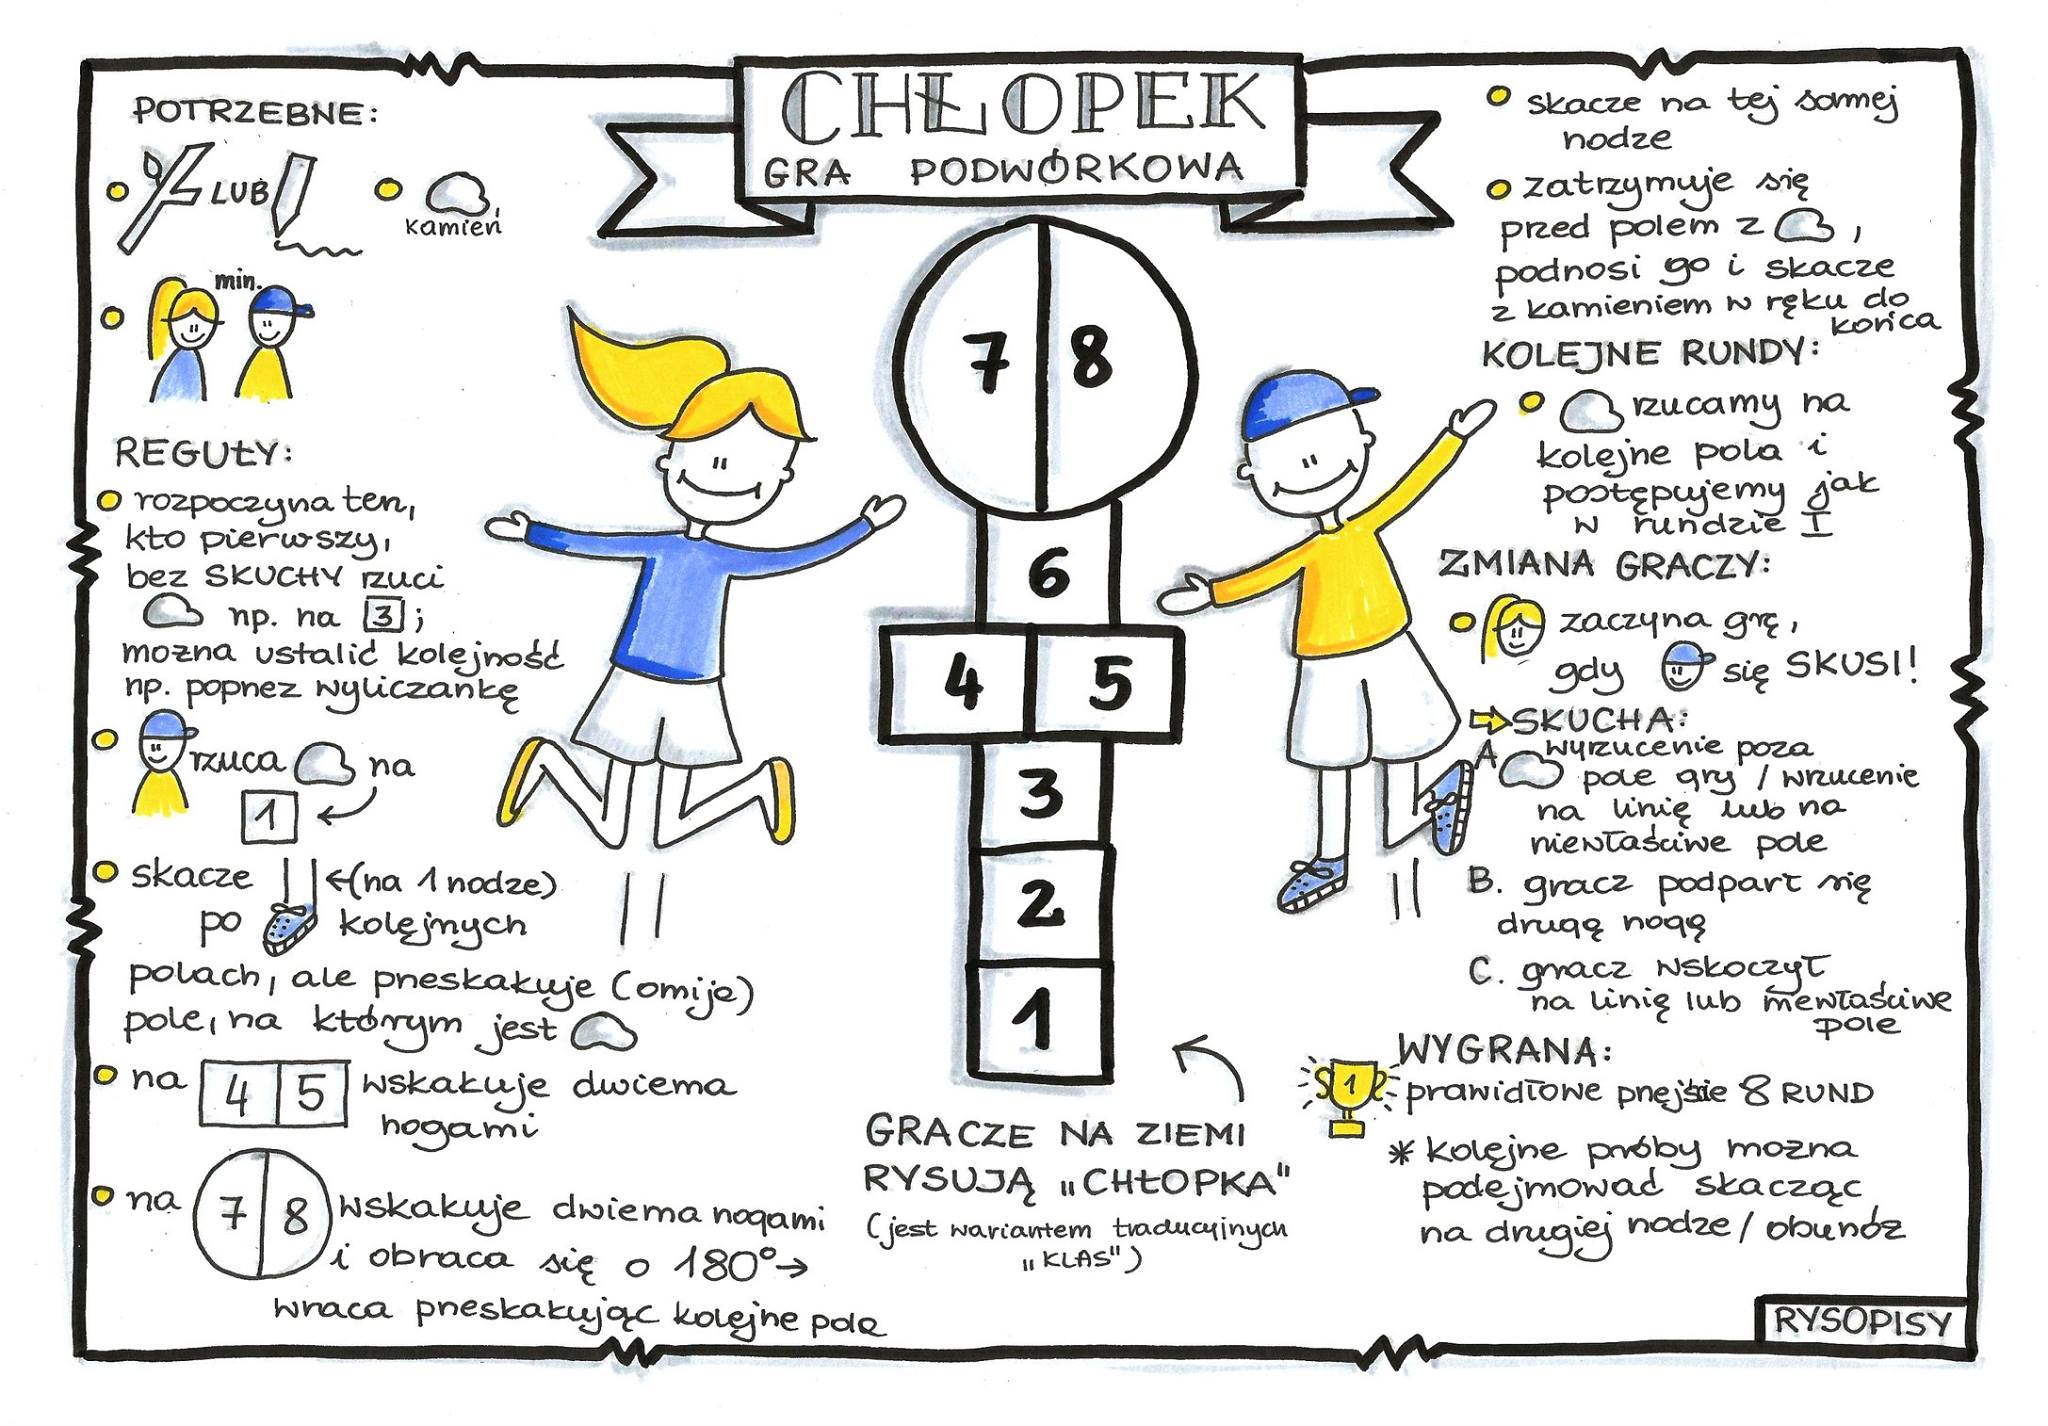 CHŁOPEK
GRA PODWÓRKOWA
POTRZEBNE:
LUB
kamień
min.
REGUŁY:
rozpoczyna ten,
kto pierwszy,
bez SKUCHY rzuci
np. na 3;
można ustalić kolejność
np. poprzez wyliczankę
rzuca na
1
skacze (na 1 nodze)
po kolejnych
polach, ale przeskakuje (omija)
pole, na którym jest
na 4 5 wskakuje dwiema
nogami
na 7 8 wskakuje dwiema nogami
i obraca się o 180° →
wraca przeskakując kolejne pola
7 8
6
4 5
3
2
1
GRACZE NA ZIEMI
RYSUJĄ „CHŁOPKA"
(jest wariantem tradycyjnych
„KLAS")
skacze na tej samej
nodze
zatrzymuje się
przed polem z ,
podnosi go i skacze
z kamieniem w ręku do
końca
KOLEJNE RUNDY:
rzucamy na
kolejne pola i
postępujemy jak
w rundzie I
ZMIANA GRACZY:
zaczyna grę,
gdy się SKUSI!
SKUCHA:
A wyrzucenie poza
pole gry / wrzucenie
na linię lub na
niewłaściwe pole
B. gracz podparł się
drugą nogą
C. gracz wskoczył
na linię lub niewłaściwe
pole
WYGRANA:
1
prawidłowe przejście 8 RUND
* kolejne próby można
podejmować skacząc
na drugiej nodze / obunóż
RYSOPISY